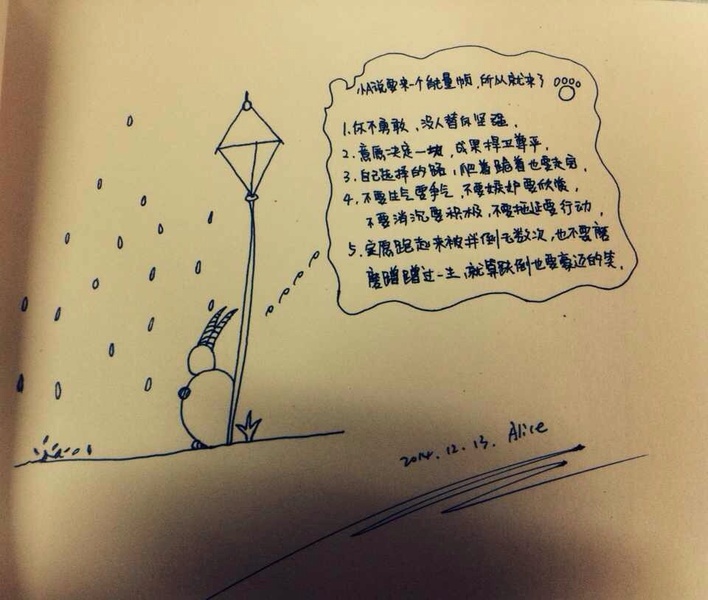 小A说要来一个能量帧,所以就来了
1.你不勇敢,没人替你坚强.
2.意愿决定一切,成果捍卫尊严.
3.自己选择的路,爬着跪着也要走完.
4.不要生气要争气,不要嫉妒要欣赏,
不要消沉要积极,不要拖延要行动,
5.宁愿跑起来被绊倒无数次,也不要磨
磨蹭蹭过一生,就算跌倒也要豪迈的笑.
2014.12.13. Alice